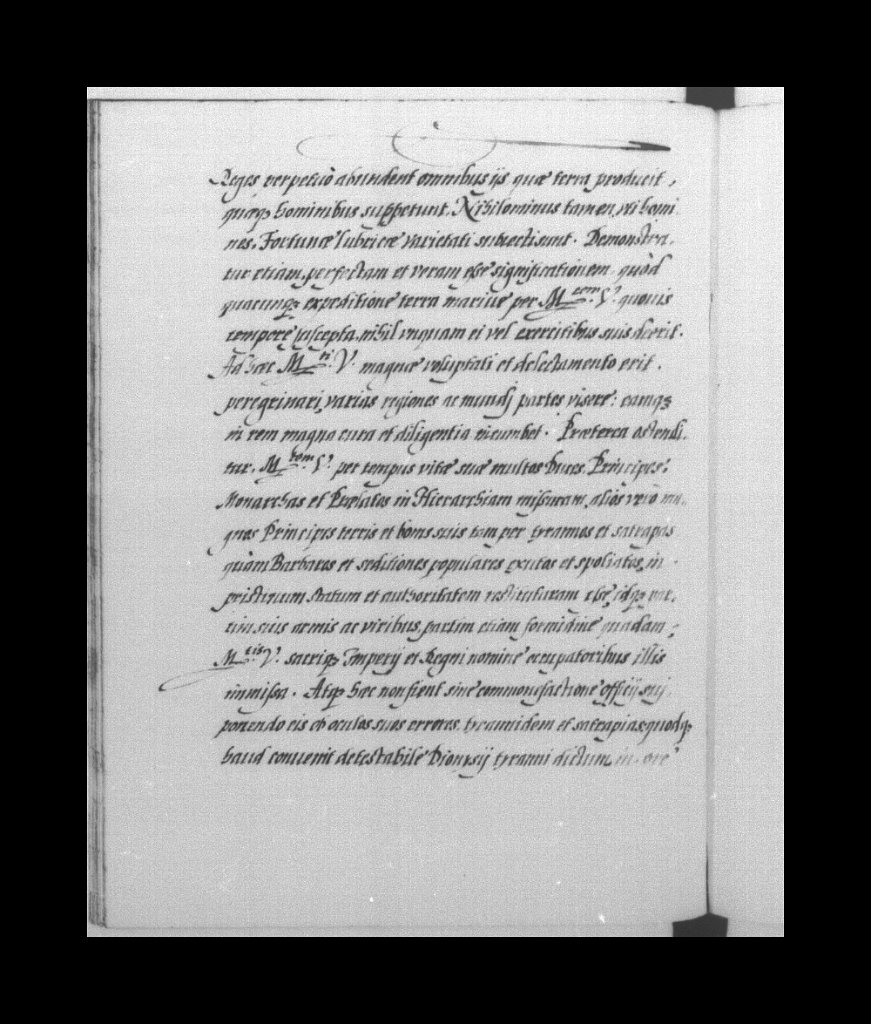 Reges perpetuò abundent omnibus ijs, quæ terra producit,
quæq3 hominibus suppetunt. Nihilominus tamen, vti homi
nes, Fortunæ lubricæ varietati subiecti sunt. Demonstra,
tur etiam, perfectam et veram esse significationem, quòd
quacunq3 expeditione terra mariue per M.tem V. quouis
tempore suscepta, nihil vnquam ei vel exercitibus suis deerit.
Ad hæc M.ti V. magnæ voluptati et delectamento erit,
peregrinari, varias regiones ac mundj partes visere: eamq3
in rem magna cura et diligentia incumbet. Præterea ostendi,
tur, M.tem V. per tempus vitæ suæ multos Duces, Principes,
Monarchas et Prælatos in Hierarchiam missuram, aliòs verò
quos Principes terris et bonis suis tam per tyrannos et satrapas
quàm Barbaros et seditiones populares exutos et spoliatos, in
pristinum statum et authoritatem restituturam esse, idq3 par,
tim suis armis ac viribus, partim etiam formidine quadam
M.tis V. sacriq3 Imperij et Regni nomine occupatoribus illis
inmissa. Atq3 hæc non fient sine commonefactione officij sui,
ponendo eis ob oculos suos errores, tyrannidem et satrapias: quodq3
haud conuenit detestabile Dionysij tyranni dictum, in ore